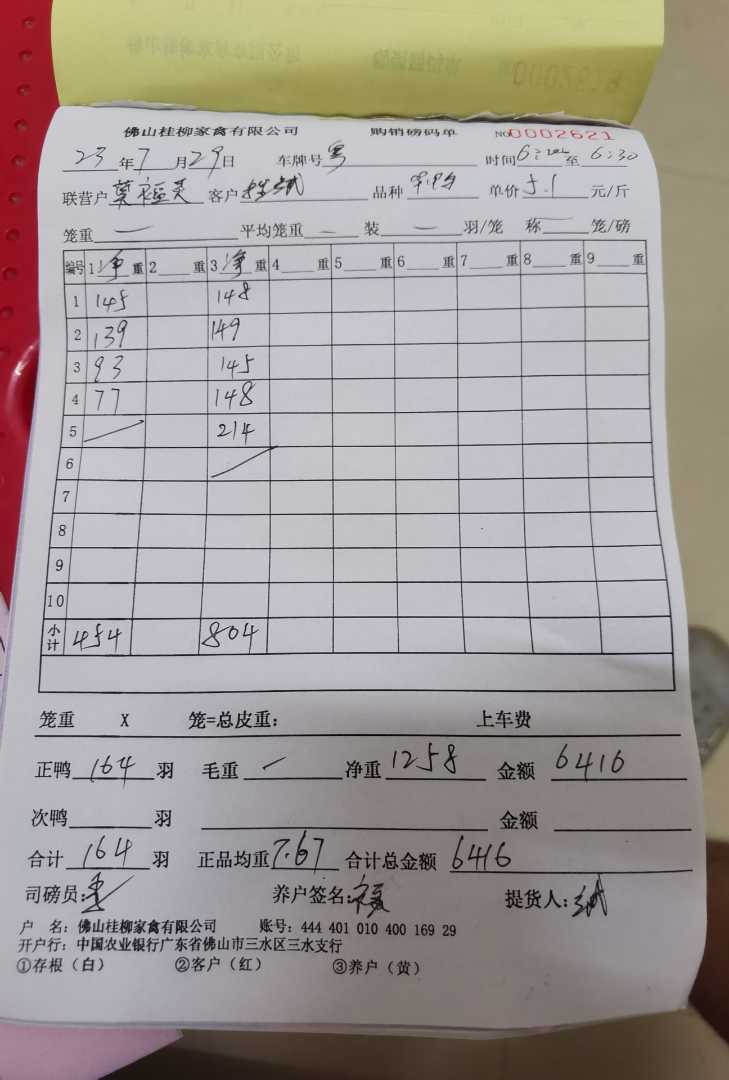 佛山桂柳家禽有限公司 购销磅码单 NO 0002621
23年7月29日 车牌号 粤 时间 至 6:30
联营户 客户 品种 单价 5.1 元/斤
笼重 一 平均笼重 一 装 一 羽/笼 称 一 笼/磅
编号 1 净 重 2 重 3 净 重 4 重 5 重 6 重 7 重 8 重 9 重
1 145 148
2 139 149
3 93 145
4 77 148
5 214
6
7
8
9
10
小计 454 804
笼重 X 笼=总皮重: 上车费
正鸭 164 羽 毛重 一 净重 1258 金额 6416
次鸭 羽 金额
合计 164 羽 正品均重 7.67 合计总金额 6416
司磅员: 养户签名: 提货人:
户 名: 佛山桂柳家禽有限公司 账号: 444 401 010 400 169 29
开户行: 中国农业银行广东省佛山市三水区三水支行
①存根(白) ②客户(红) ③养户(黄)